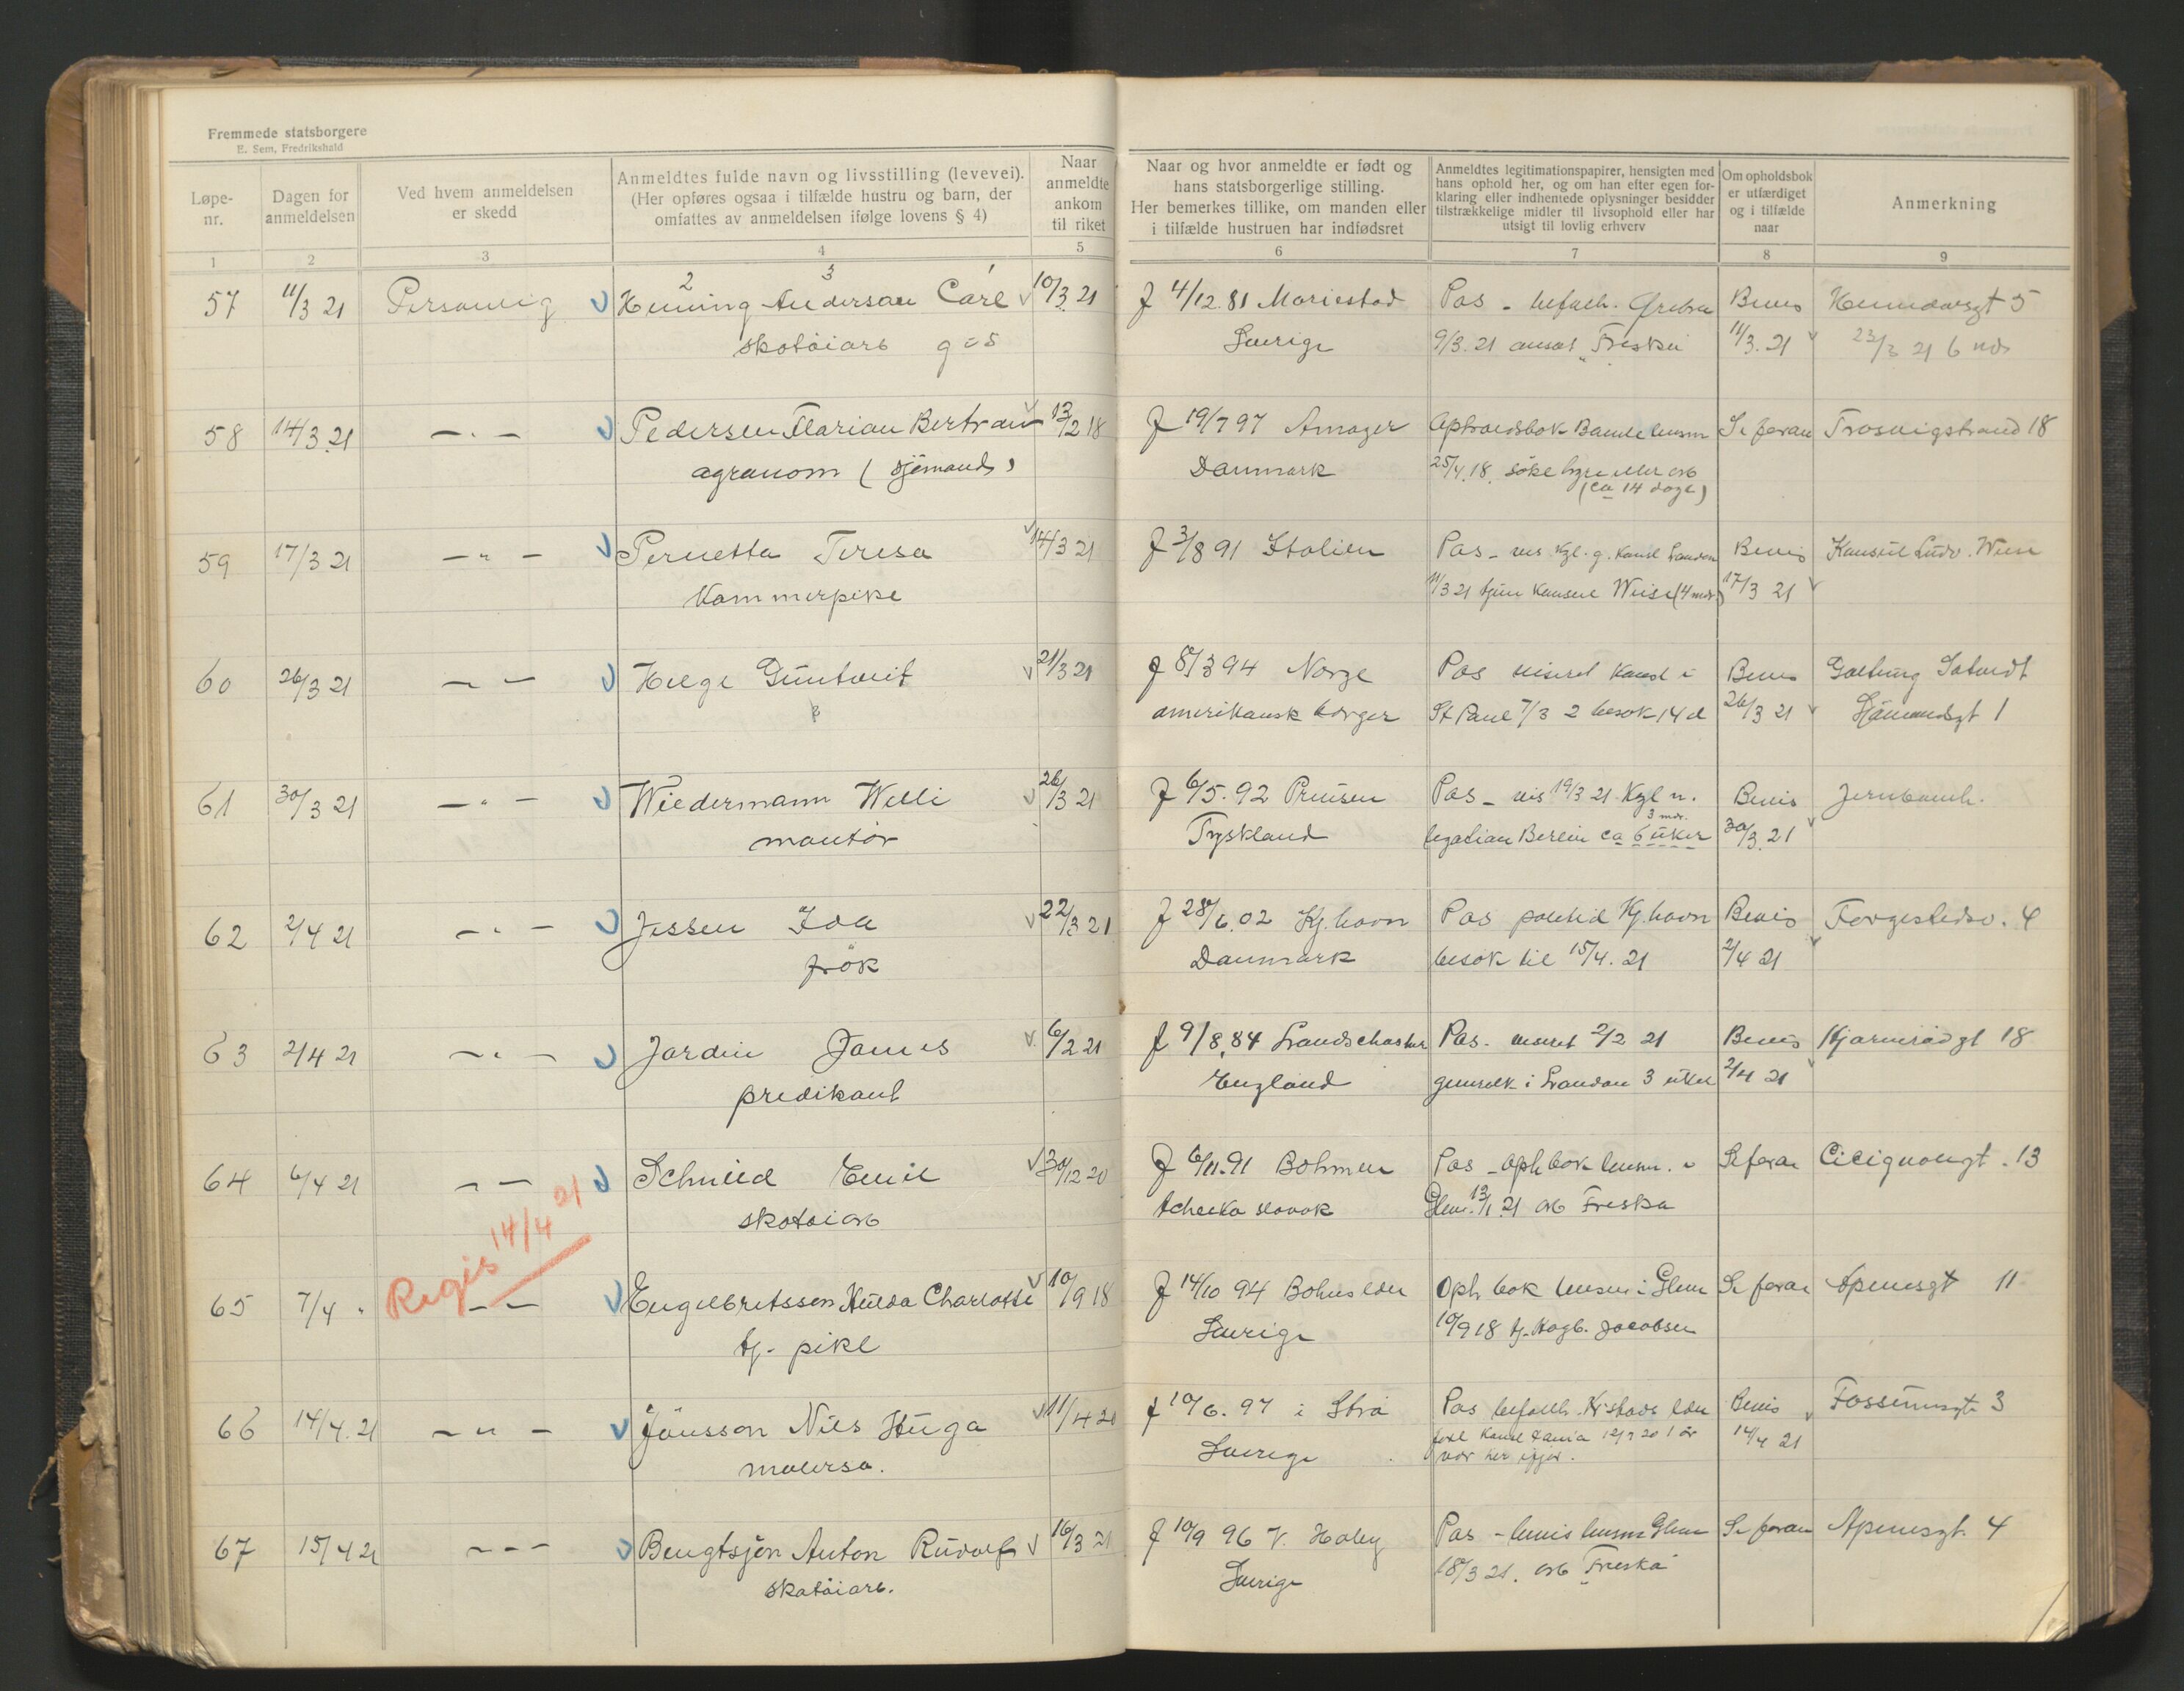 Fremmede statsborgere
E. Sem, Fredrikshald
Løpe-
nr.
Dagen for
anmeldelsen
Ved hvem anmeldelsen
er skedd
Anmeldtes fulde navn og livsstilling (levevei).
(Her opføres ogsaa i tilfælde hustru og barn, der
omfattes av anmeldelsen ifølge lovens § 4)
Naar
anmeldte
ankom
til riket
Naar og hvor anmeldte er født og
hans statsborgerlige stilling.
Her bemerkes tillike, om manden eller
i tilfælde hustruen har indfødsret
Anmeldtes legitimationspapirer, hensigten med
hans ophold her, og om han efter egen for-
klaring eller indhentede oplysninger besidder
tilstrækkelige midler til livsophold eller har
utsigt til lovlig erhverv
Om opholdsbok
er utfærdiget
og i tilfælde
naar
Anmerkning
1 2 3 4 5 6 7 8 9
2 3 1
57 11/3 21 Personlig Henning Anderson Carl 10/3 21 f 4/12.81 Mariestad Pas - befalh. Bevis 5
skotøiarb g=5 Sverige 9/3.21 ansat "Freska" 11/3.21 23/3 21 6 mdr
58 14/3.21 - " - Pedersen Florian Bertram 13/2 18 f 19/7 97 Amager Opholdsbok Bamble lensm Se foran Trosvigstrand 18
agronom (sjømand) Danmark 25/4.18. søke hyre eller arb
(ca 14 dage)
59 17/3 21 - " - Pernetta Teresa 14/3 21 f 3/8 91 Italien Pas - vis Kgl. g. Konsl London Bevis Konsul Ludv. Wiese
Kammerpike 11/3 21 tjen Konsul Wiese (4 mdr) 17/3 21
60 26/3 21 - " - Helge Guntveit 21/3 21 f 8/3 94 Norge Pas viseret Konsl i Bevis
amerikansk borger St Paul 7/3 2 besøk 14 d 26/3 21 1
61 30/3 21 - " - Wiedermann Willi 26/3 21 f 6/5.92 Preusen Pas - vis 19/3 21 Kgl n. Bevis Jernbaneh.
3 mdr.
montør Tyskland legation Berlin ca 6 uker 30/3.21
62 2/4 21 - " - Jessen Ida 22/3 21 f 28/6.02 Kj.havn Pas politid Kj.havn Bevis Torgestedsv. 4
frøk Danmark besøk til 15/4.21 2/4 21
63 2/4 21 - " - Jardin James 6/2 21 f 9/8.84 Pas - viseret 2/2 21 Bevis 18
predikant England i London 3 uker 2/4 21
64 6/4 21 - " - Schmied Emil 30/12 20 f 6/11.91 Bohmen Pas - Oph bok lensm. i Se foran Cicignongt. 13
skotøiarb tchecko slovak Glem. 13/1 21 arb Freska
Regis 14/4 21
65 7/4 " - " - Engelbretsson Hulda Charlotte 10/9 18 f 14/10 94 Bohus len Oph bok lensm i Glem Se foran Apenesgt 11
tj. pike Sverige 10/9 18 tj. Jacobsen
66 14/4.21 - " - Jönsson Nils Hugo 11/4 21 f 10/6.97 i Strö Pas befalh. Kristads len Bevis 3
malersv. Sverige 12/7 20 1 år 14/4 21
var her ifjor.
67 15/4 21 - " - Bengtsjön Anton Rudolf 16/3 21 f 10/9 96 V. Haby Pas - bevis lensm Glem Se foran Apenesgt. 4
skotøiarb. Sverige 18/3 21. arb "Freska"